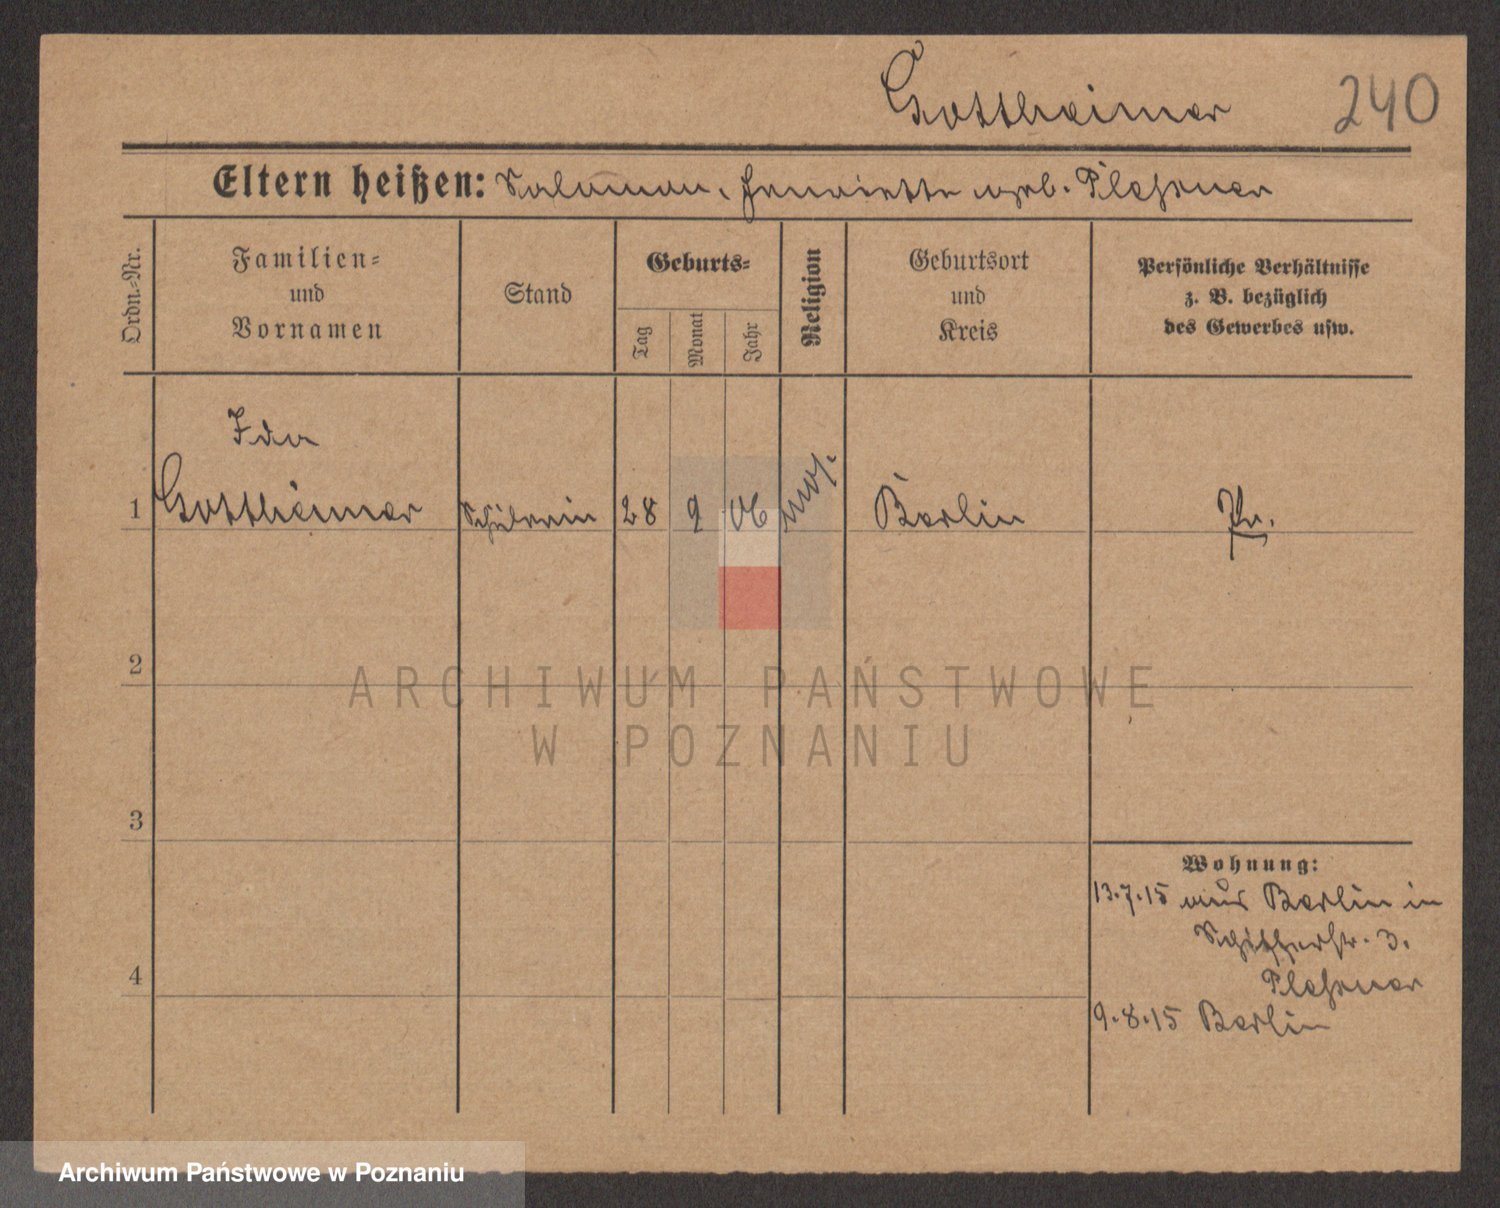 Gottheimer 240
Eltern heißen: Salomon, Henriette geb. Plessner
Ordn.-Nr.
Familien- und Vornamen
Stand
Geburts-
Tag
Monat
Jahr
Religion
Geburtsort und Kreis
Persönliche Verhältnisse z. B. bezüglich des Gewerbes usw.
Ida
1 Gottheimer Schülerin 28 9 06 mos. Berlin Pr.
2
ARCHIWUM PAŃSTWOWE
W POZNANIU
3
Wohnung:
13.7.15 aus Berlin in
3.
4 Plessner
9.8.15 Berlin
Archiwum Państwowe w Poznaniu